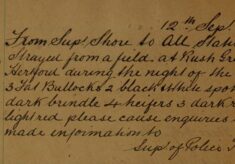 12th Sept
From Supt Shore to All Stati
Strayed from a field at Rush Gr
Hertford during the night of the
3 Fat Bullocks 2 black & white spot
dark brindle 4 heifers 3 dark r
light red please cause enquiries
made information to
Supt of Police